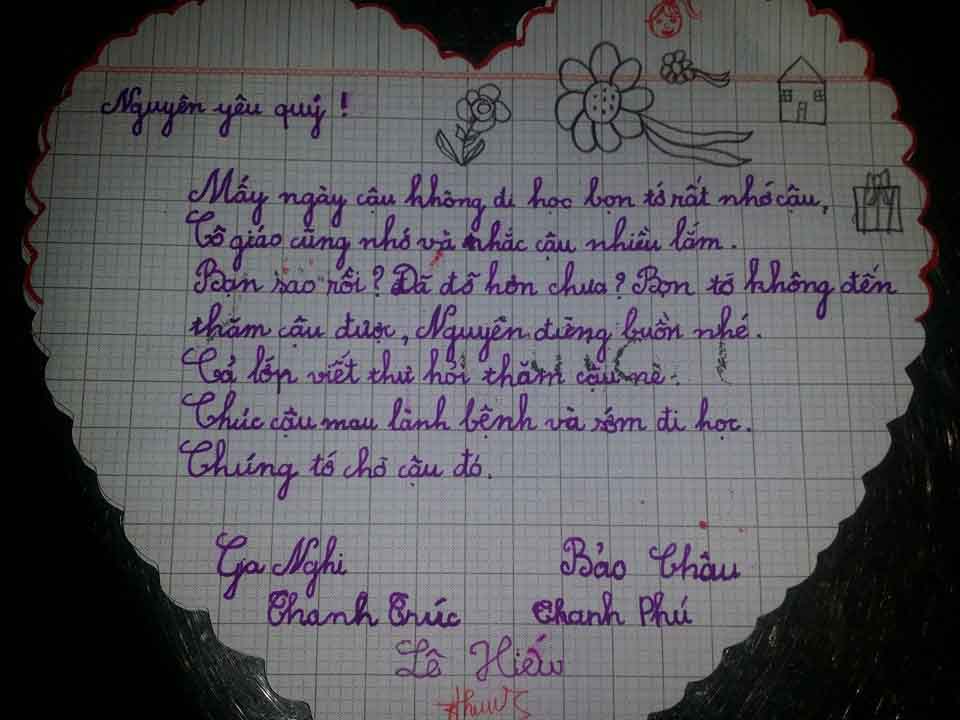 Nguyên yêu quý!
Mấy ngày cậu không đi học bọn tớ rất nhớ cậu,
Cô giáo cũng nhớ và nhắc cậu nhiều lắm.
Bạn sao rồi? Đã đỡ hơn chưa? Bọn tớ không đến
thăm cậu được, Nguyên đừng buồn nhé.
Cả lớp viết thư hỏi thăm cậu nè.
Chúc cậu mau lành bệnh và sớm đi học.
Chúng tớ chờ cậu đó.
Gia Nghi Bảo Châu
Thanh Trúc Thanh Phú
Lê Hiếu